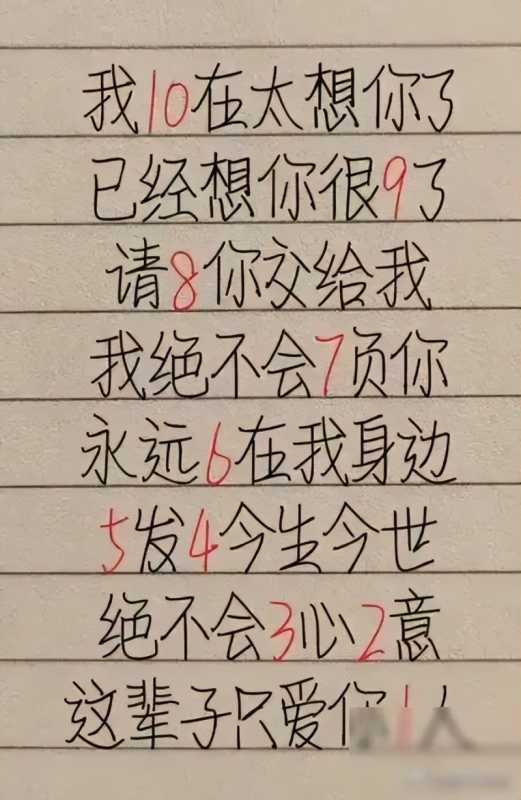 我10在太想你了
已经想你很9了
请8你交给我
我绝不会7负你
永远6在我身边
5发4今生今世
绝不会3心2意
这辈子只爱你1人